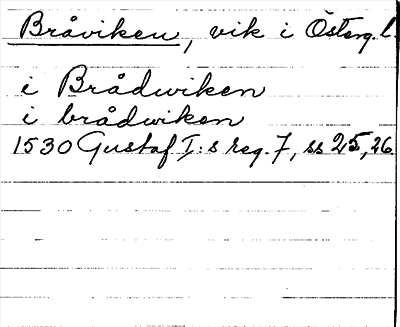 Bråviken, vik i Österg. l.
i Brådwiken
i brådwiken
1530 Gustaf I:s reg. 7, ss 25, 26.